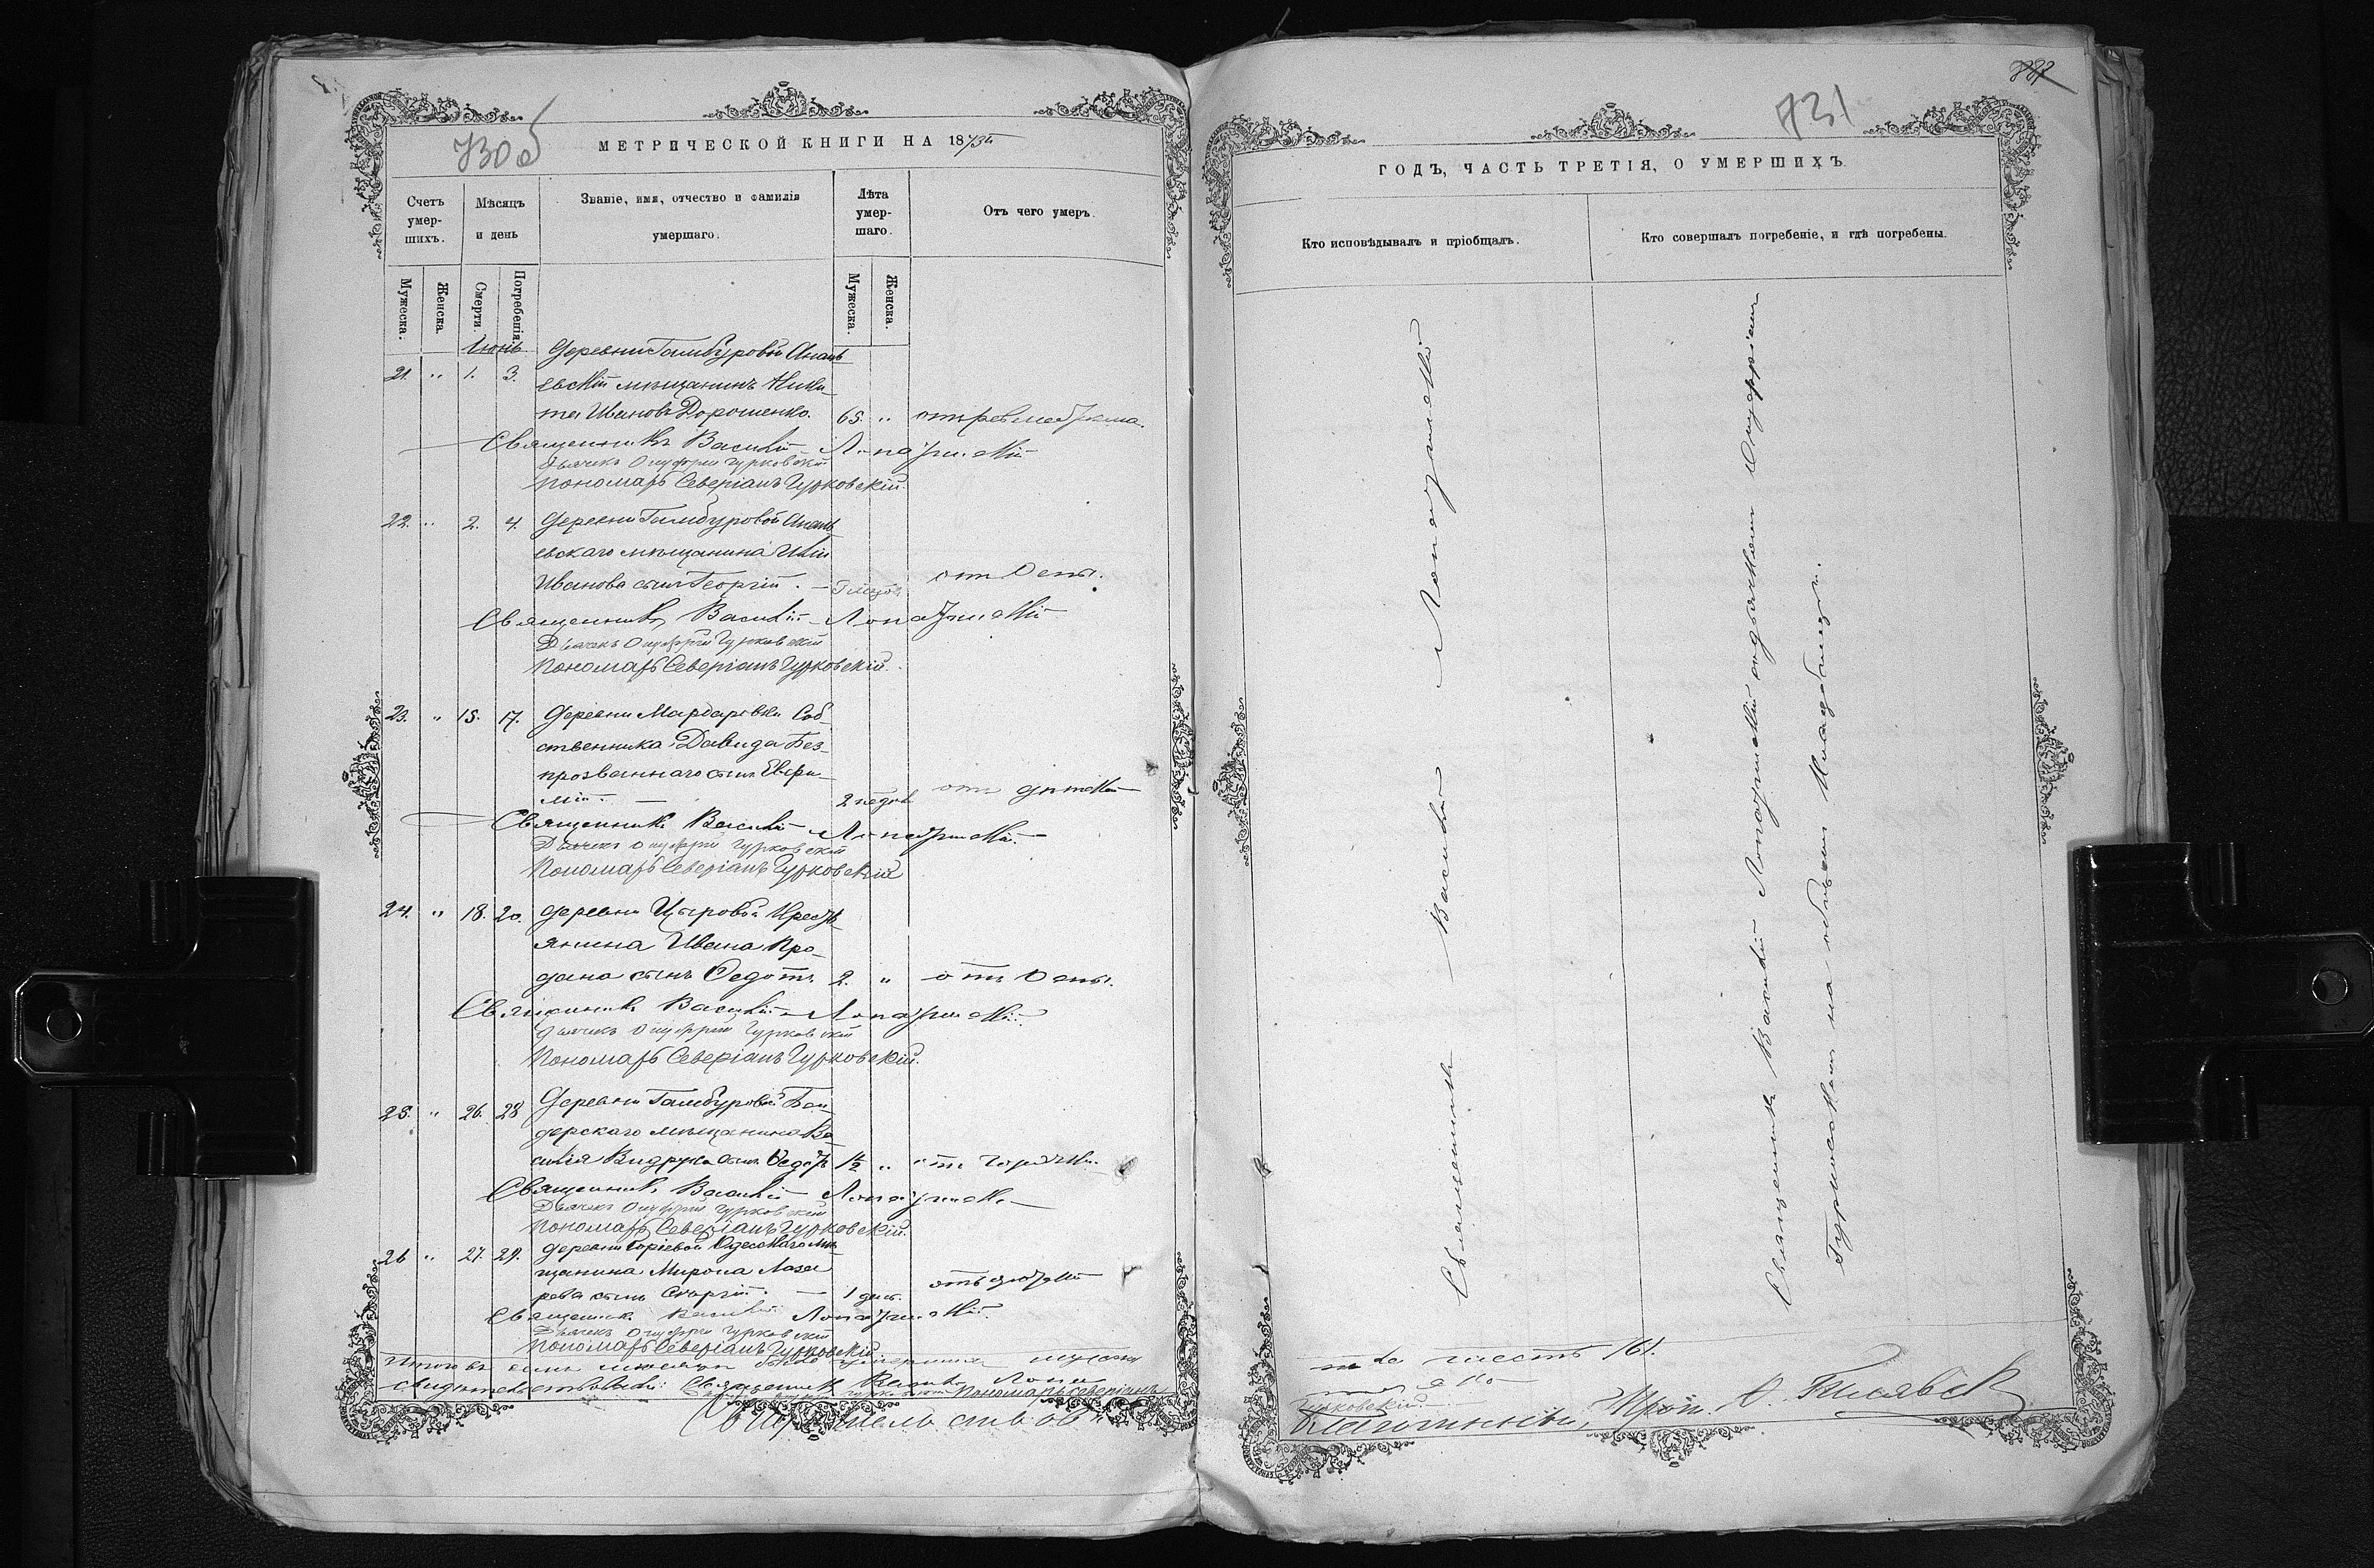 730 об
МЕТРИЧЕСКОЙ КНИГИ НА 1873й
Счетъ умер-шихъ.
Мѣсяцъ и день
Званіе, имя, отчество и фамилія умершаго.
Лѣта умер-шаго.
Отъ чего умеръ.
Мужеска.
Женска.
Смерти.
Погребенія.
Мужеска.
Женска.
Іюнь
деревни Гамбуровой Анань
21. " 1. 3. евскій мѣщанинъ Ники
та Ивановъ Дорошенко. 65. "
Священникъ Василій Лопатинскій
Дьячекъ Онуфрій Гурковскій
Пономарь Северіанъ Гурковскій.
22. " 2. 4. деревни Гамбуровой Анань
евскаго мѣщанина
Иванова сынъ Георгій. отъ Оспы.
Священникъ Василій Лопатинскій
Дьячекъ Онуфрій Гурковскій
Пономарь Северіанъ Гурковскій.
23. " 15. 17. деревни Мардаровки Соб
ственника Давида Без
прозваннаго сынъ Евфи
мій. 2 недѣл
Священникъ Василій Лопатинскій.
Дьячекъ Онуфрій Гурковскій
Пономарь Северіанъ Гурковскій
24. " 18. 20. деревни Цыровой Кресть
янина Ивана Про
дана сынъ Ѳедотъ 2. " отъ Оспы.
Священникъ Василій Лопатинскій.
Дьячекъ Онуфрій Гурковскій
Пономарь Северіанъ Гурковскій.
25. " 26. 28 деревни Гамбуровой Бен
дерскаго мѣщанина Ва
силія сынъ 1½ " отъ горячки.
Священникъ Василій Лопатинскій
Дьячекъ Онуфрій Гурковскій
Пономарь Северіанъ Гурковскій.
26 " 27. 29. деревни Одесскаго мѣ
щанина Мирона Лаза
рева сынъ
Священникъ Василій Лопатинскій.
Дьячекъ Онуфрій Гурковскій
Пономарь Северіанъ Гурковскій.
Итого въ семъ мѣсяцѣ было умершихъ мужска
Священникъ Василій Лопа
Пономарь Северіанъ
731
ГОДЪ, ЧАСТЬ ТРЕТІЯ, О УМЕРШИХЪ.
Кто исповѣдывалъ и пріобщалъ.
Кто совершалъ погребеніе, и гдѣ погребены.
Священникъ Василій Лопатинскій
Священникъ Василій Лопатинскій съ дьячкомъ Онуфріемъ
Гурковскимъ на общемъ кладбищѣ.
шесть /6/.
Гурковскій.
Благочинный, Прот.